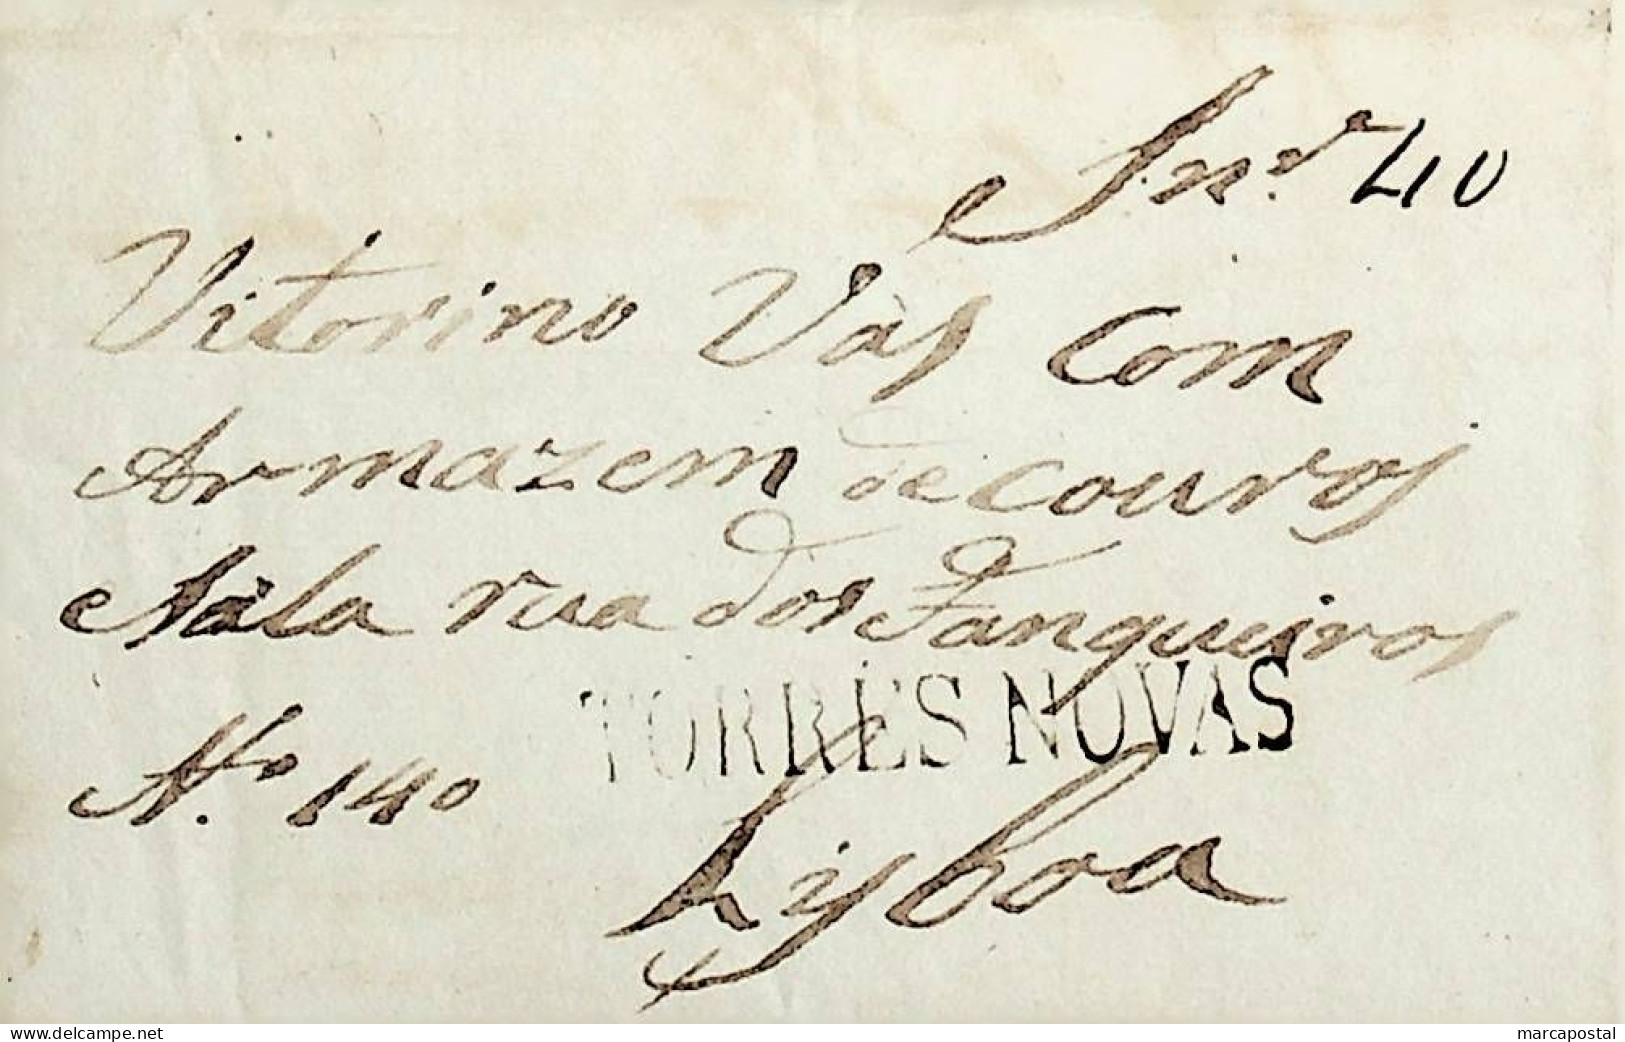 Snr. 40
Vitorino Vas com
Armazem de couros
Nala rua dos Fanqueiros
TORRES NOVAS
No. 140
Lysboa
www.delcampe.net
marcapostal